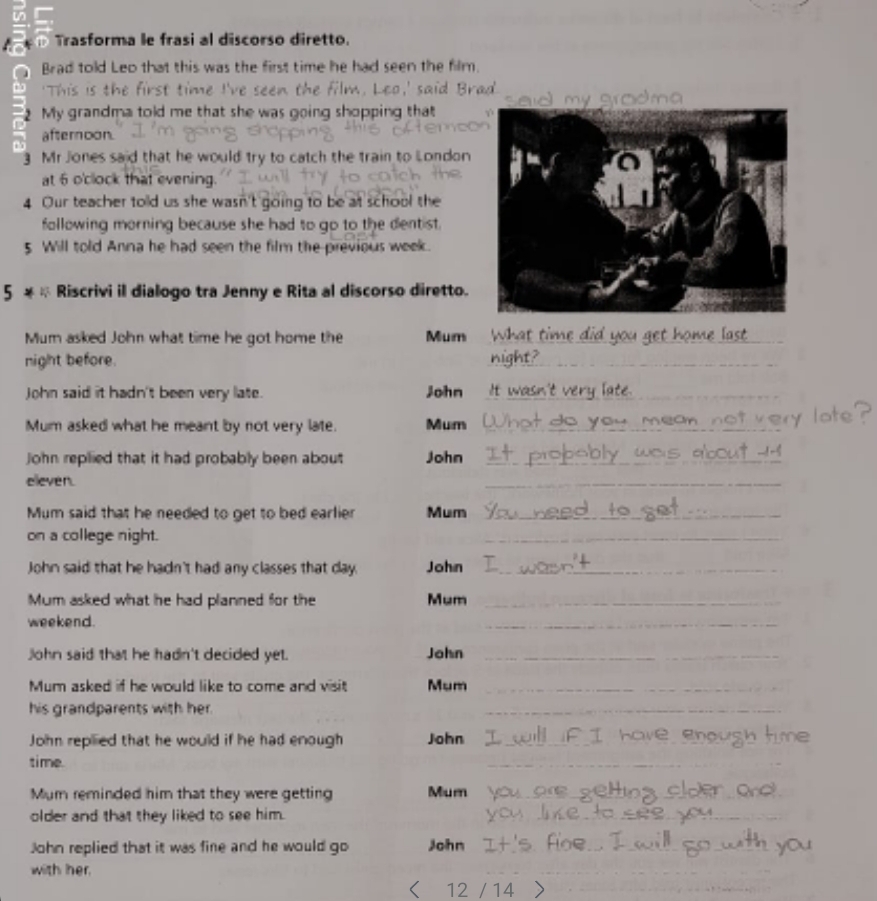 Lite
nsing Camera
Trasforma le frasi al discorso diretto.
Brad told Leo that this was the first time he had seen the film.
'This is the first time I've seen the film, Leo,' said Brad.
2 My grandma told me that she was going shopping that
afternoon. "I'm going shopping this afternoon" said my gradma
3 Mr Jones said that he would try to catch the train to London
this
at 6 o'clock that evening. "I will try to catch the
train to London"
4 Our teacher told us she wasn't going to be at school the
following morning because she had to go to the dentist.
Last
5 Will told Anna he had seen the film the previous week.
5 Riscrivi il dialogo tra Jenny e Rita al discorso diretto.
Mum asked John what time he got home the
night before.
Mum What time did you get home last
night?
John said it hadn't been very late.
John It wasn't very late.
Mum asked what he meant by not very late.
Mum What do you mean not very late?
John replied that it had probably been about
eleven.
John It probably was about 11
Mum said that he needed to get to bed earlier
on a college night.
Mum You need to get ...
John said that he hadn't had any classes that day.
John I wasn't
Mum asked what he had planned for the
weekend.
Mum
John said that he hadn't decided yet.
John
Mum asked if he would like to come and visit
his grandparents with her.
Mum
John replied that he would if he had enough
time.
John I will if I have enough time
Mum reminded him that they were getting
older and that they liked to see him.
Mum you are getting older and
you like to see you
John replied that it was fine and he would go
with her.
John It's fine. I will go with you
12 / 14